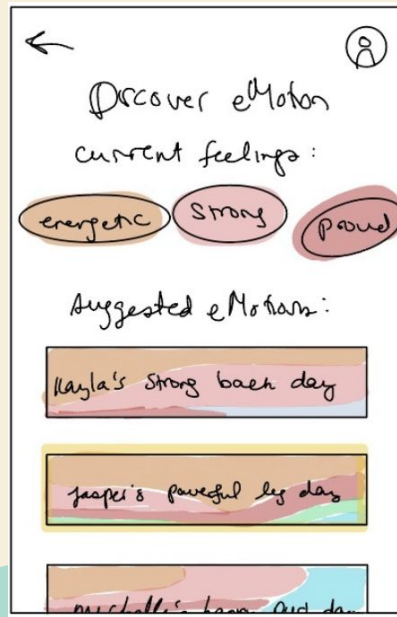 Discover eMotion
current feelings:
energetic strong proud
Suggested eMotions:
Kayla's strong back day
Jasper's powerful leg day